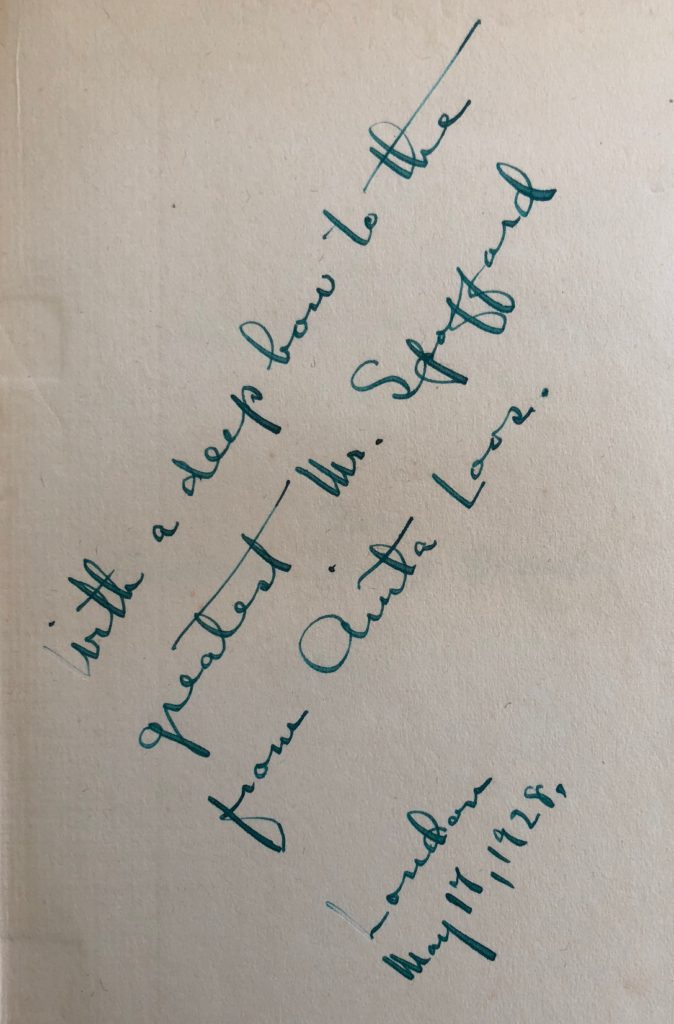 With a deep bow to the
greatest Mr. Spoffard
from Anita Loos.
London
May 17, 1928.